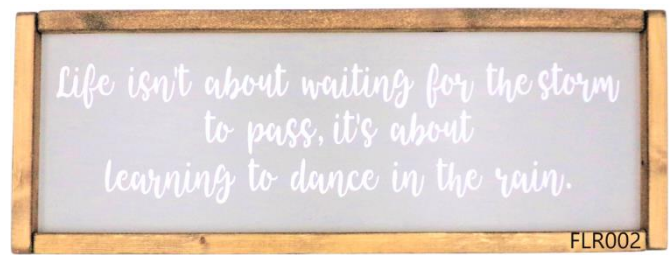 Life isn't about waiting for the storm
to pass, it's about
learning to dance in the rain.
FLR002